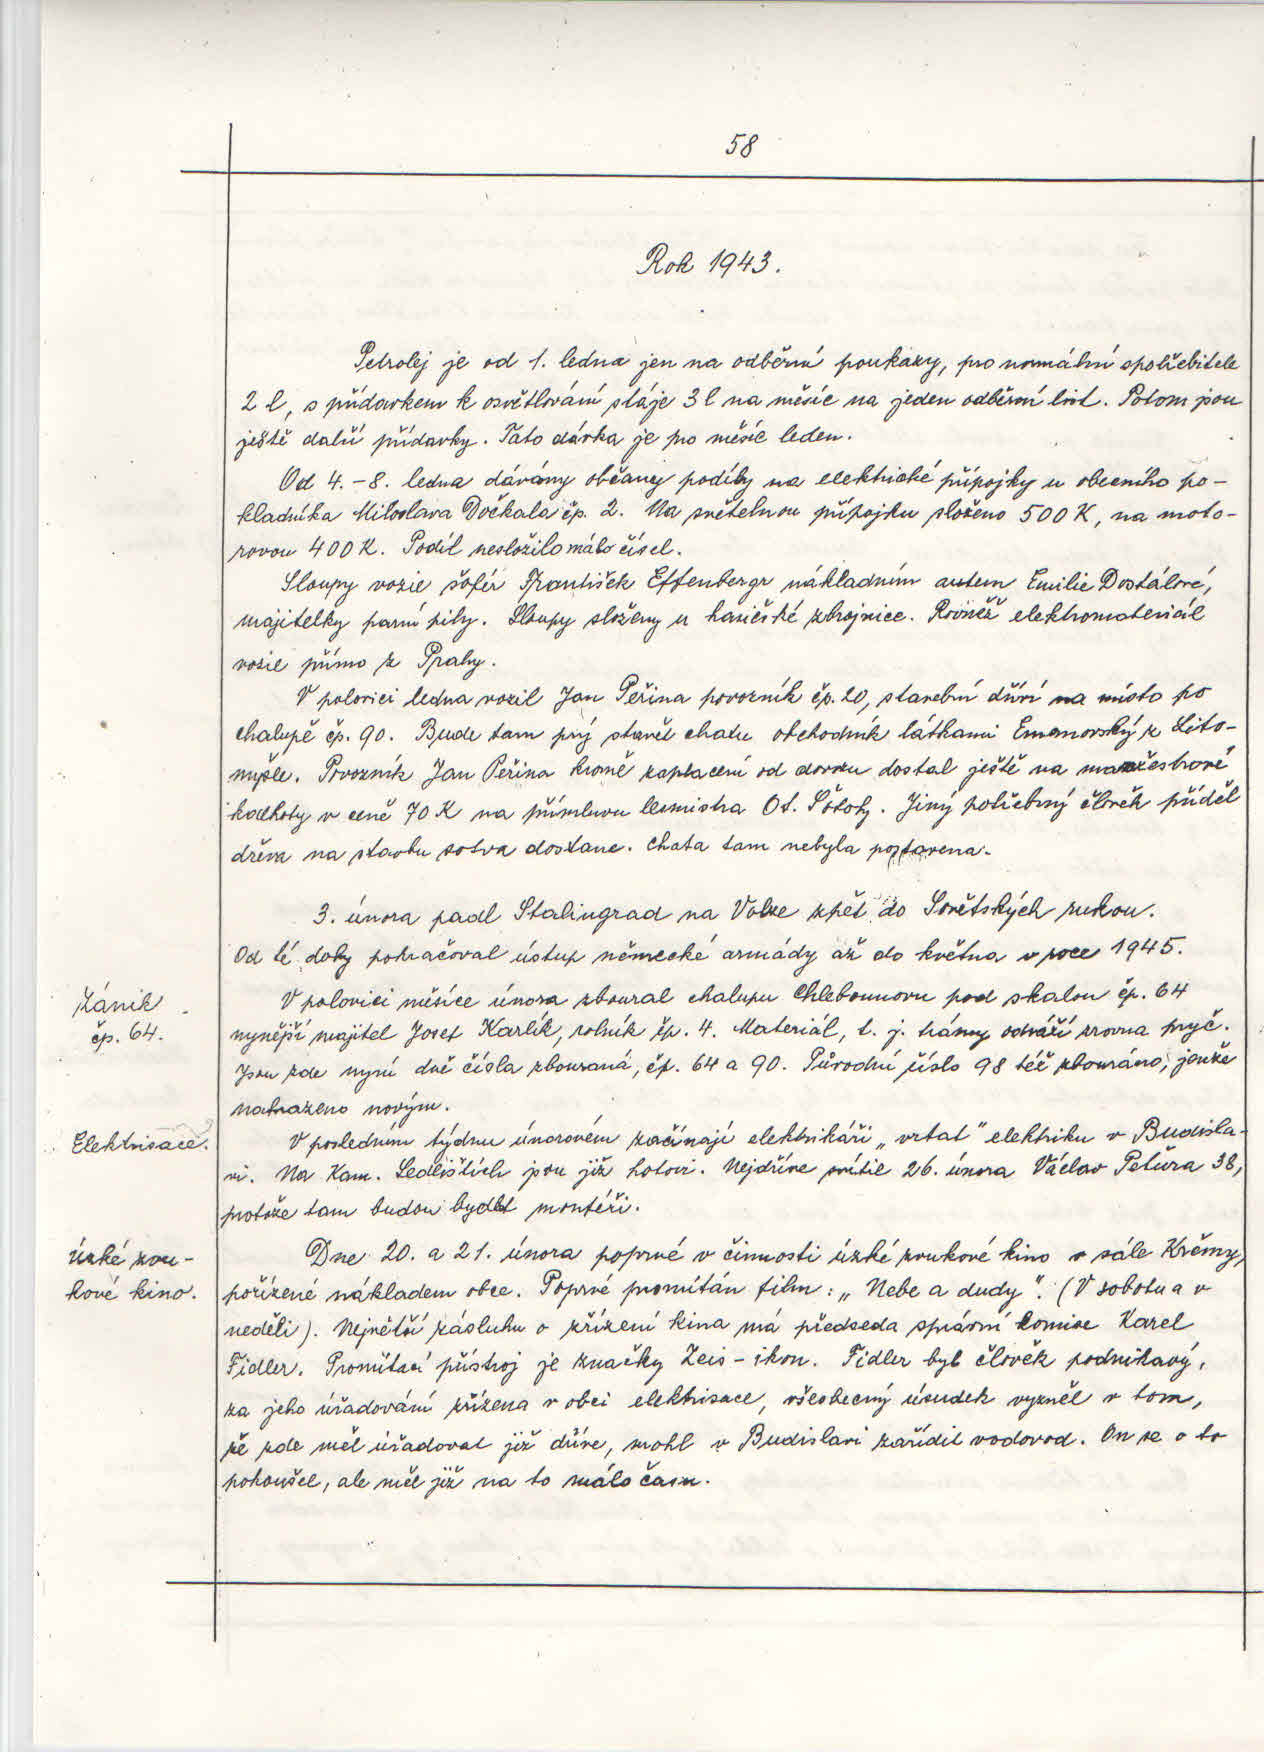 58
Rok 1943.
Petrolej je od 1. ledna jen na odběrní poukazy, pro normální spotřebitele
2 l, s přídavkem k osvětlování stáje 3 l na měsíc na jeden odběrní list. Potom jsou
ještě další přídavky. Tato dávka je pro měsíc leden.
Od 4. – 8. ledna dávány občany podíly na elektrické přípojky u obecního po-
kladníka Miloslava Dočkala čp. 2. Na světelnou přípojku složeno 500 K, na moto-
rovou 400 K. Podíl nesložilo málo čísel.
Sloupy vozil šofér František Effenbergr nákladním autem Emilie Dostálové,
majitelky parní pily. Sloupy složeny u hasičské zbrojnice. Rovněž elektromateriál
vozil přímo z Prahy.
V polovici ledna vozil Jan Peřina povozník čp. 20, stavební dříví na místo po
chalupě čp. 90. Bude tam prý stavět chatu obchodník látkami Emanovský z Lito-
myšle. Povozník Jan Peřina kromě zaplacení od dovozu dostal ještě na manžestrové
kalhoty v ceně 70 K na přímluvu lesmistra Ot. Šotoly. Jiný potřebný člověk příděl
dřeva na stavbu sotva dostane. Chata tam nebyla postavena.
3. února padl Stalingrad na Volze zpět do Sovětských rukou.
Od té doby pokračoval ústup německé armády až do května v roce 1945.
Zánik
čp. 64.
V polovici měsíce února zboural chalupu Chlebounovu pod skalou čp. 64
nynější majitel Josef Karlík, rolník čp. 4. Materiál, t. j. trámy odváží zrovna pryč.
Jsou zde nyní dvě čísla zbouraná, čp. 64 a 90. Původní číslo 98 též zbouráno, jenže
nahrazeno novým.
Elektrisace.
V posledním týdnu únorovém začínají elektrikáři „vrtat" elektriku v Budisla-
vi. Na Kam. Sedlištích jsou již hotovi. Nejdříve svítil 26. února Václav Peťura 38,
protože tam budou bydlet montéři.
Úzké zvu-
kové kino.
Dne 20. a 21. února poprvé v činnosti úzké zvukové kino v sále Krčmy,
pořízené nákladem obce. Poprvé promítán film: „Nebe a dudy". (V sobotu a v
neděli). Největší zásluhu o zřízení kina má předseda správní komise Karel
Fidler. Promítací přístroj je značky Zeis – ikon. Fidler byl člověk podnikavý,
za jeho úřadování zřízena v obci elektrisace, všeobecný úsudek vyzněl v tom,
že zde měl úřadovat již dříve, mohl v Budislavi zařídit vodovod. On se o to
pokoušel, ale měl již na to málo času.